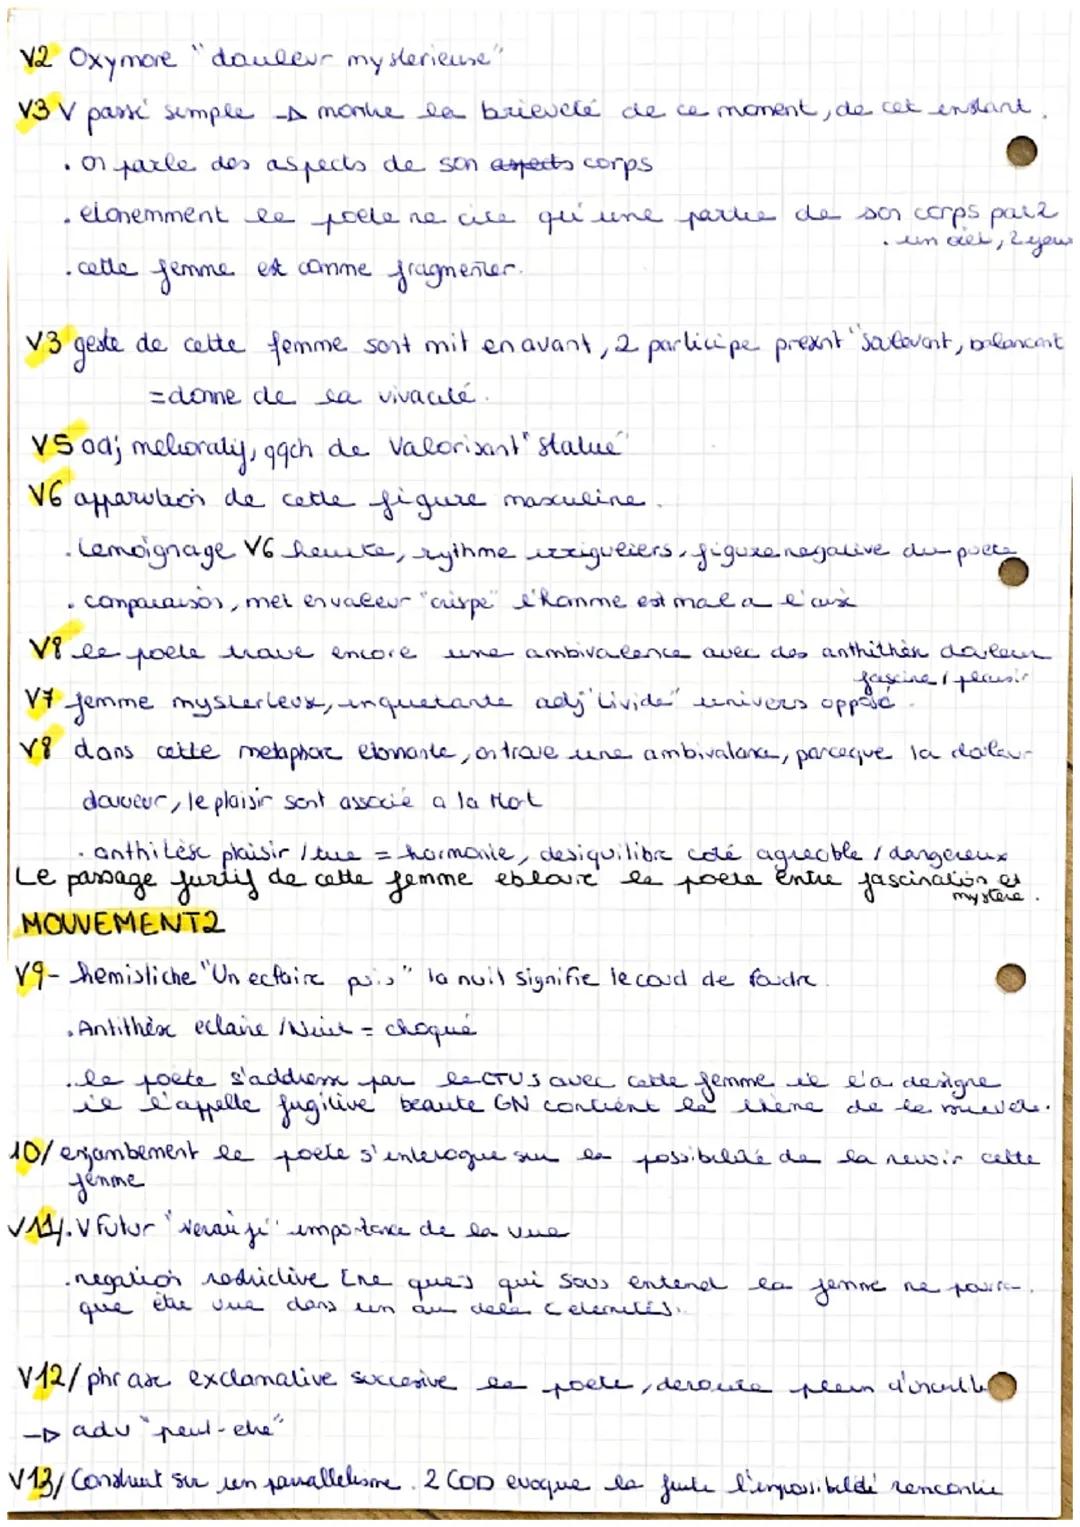 V2 Oxymore "douleur mysterieuse"
V3 V passé simple → montre la brieveté de ce moment, de cet instant.
. On parle des aspects de son aspects corps
. etonemment le poete ne cite qu'une partie de son corps par 2
. un oeil, 2 yeux
. cette femme est comme fragmenter.
V3 geste de cette femme sont mit en avant, 2 participe present "soulevant, balancant
= donne de la vivacité.
V5 adj melioratif, qqch de Valorisant "statue"
V6 apparution de cette figure masculine.
. temoignage V6 heurte, rythme irriguliers, figure negative du poete
. comparaison, met en valeur "crispe" l'homme est mal a l'aise
V8 le poete trouve encore une ambivalence avec des anthithèse douleur
fascine / plaisir
V7 femme mysterieux, inquetante adj "livide" univers opposé.
V8 dans cette metaphore etonnante, on trouve une ambivalance, parceque la douleur
douceur, le plaisir sont associé a la Mort
. anthitèse plaisir / tue = harmonie, desiquilibre coté agreable / dangereux
Le passage furtif de cette femme eblouir le poete entre fascination et
mystere.
MOUVEMENT2
V9- hemistiche "Un eclaire puis" la nuit signifie le coud de foudre.
. Antithèse eclaire / Nuit = choqué
. le poete s'addresse par le [TU] avec cette femme il l'a designe
il l'appelle fugitive beaute GN contient le thème de la
10/ enjambement le poete s'interogue sur la possibilité de la revoir cette
femme
V11/. V Futur "verai je" importance de la vue
. negation restrictive [ne que] qui sous entend la femme ne pourra
que être vue dans un au dela (eternités).
V12/ phrase exclamative succesive le poete, deroute plein
→ adv "peut-etre"
V13/ Construit sur un parallelisme. 2 COD evoque la fuite l'impossibilité rencontre